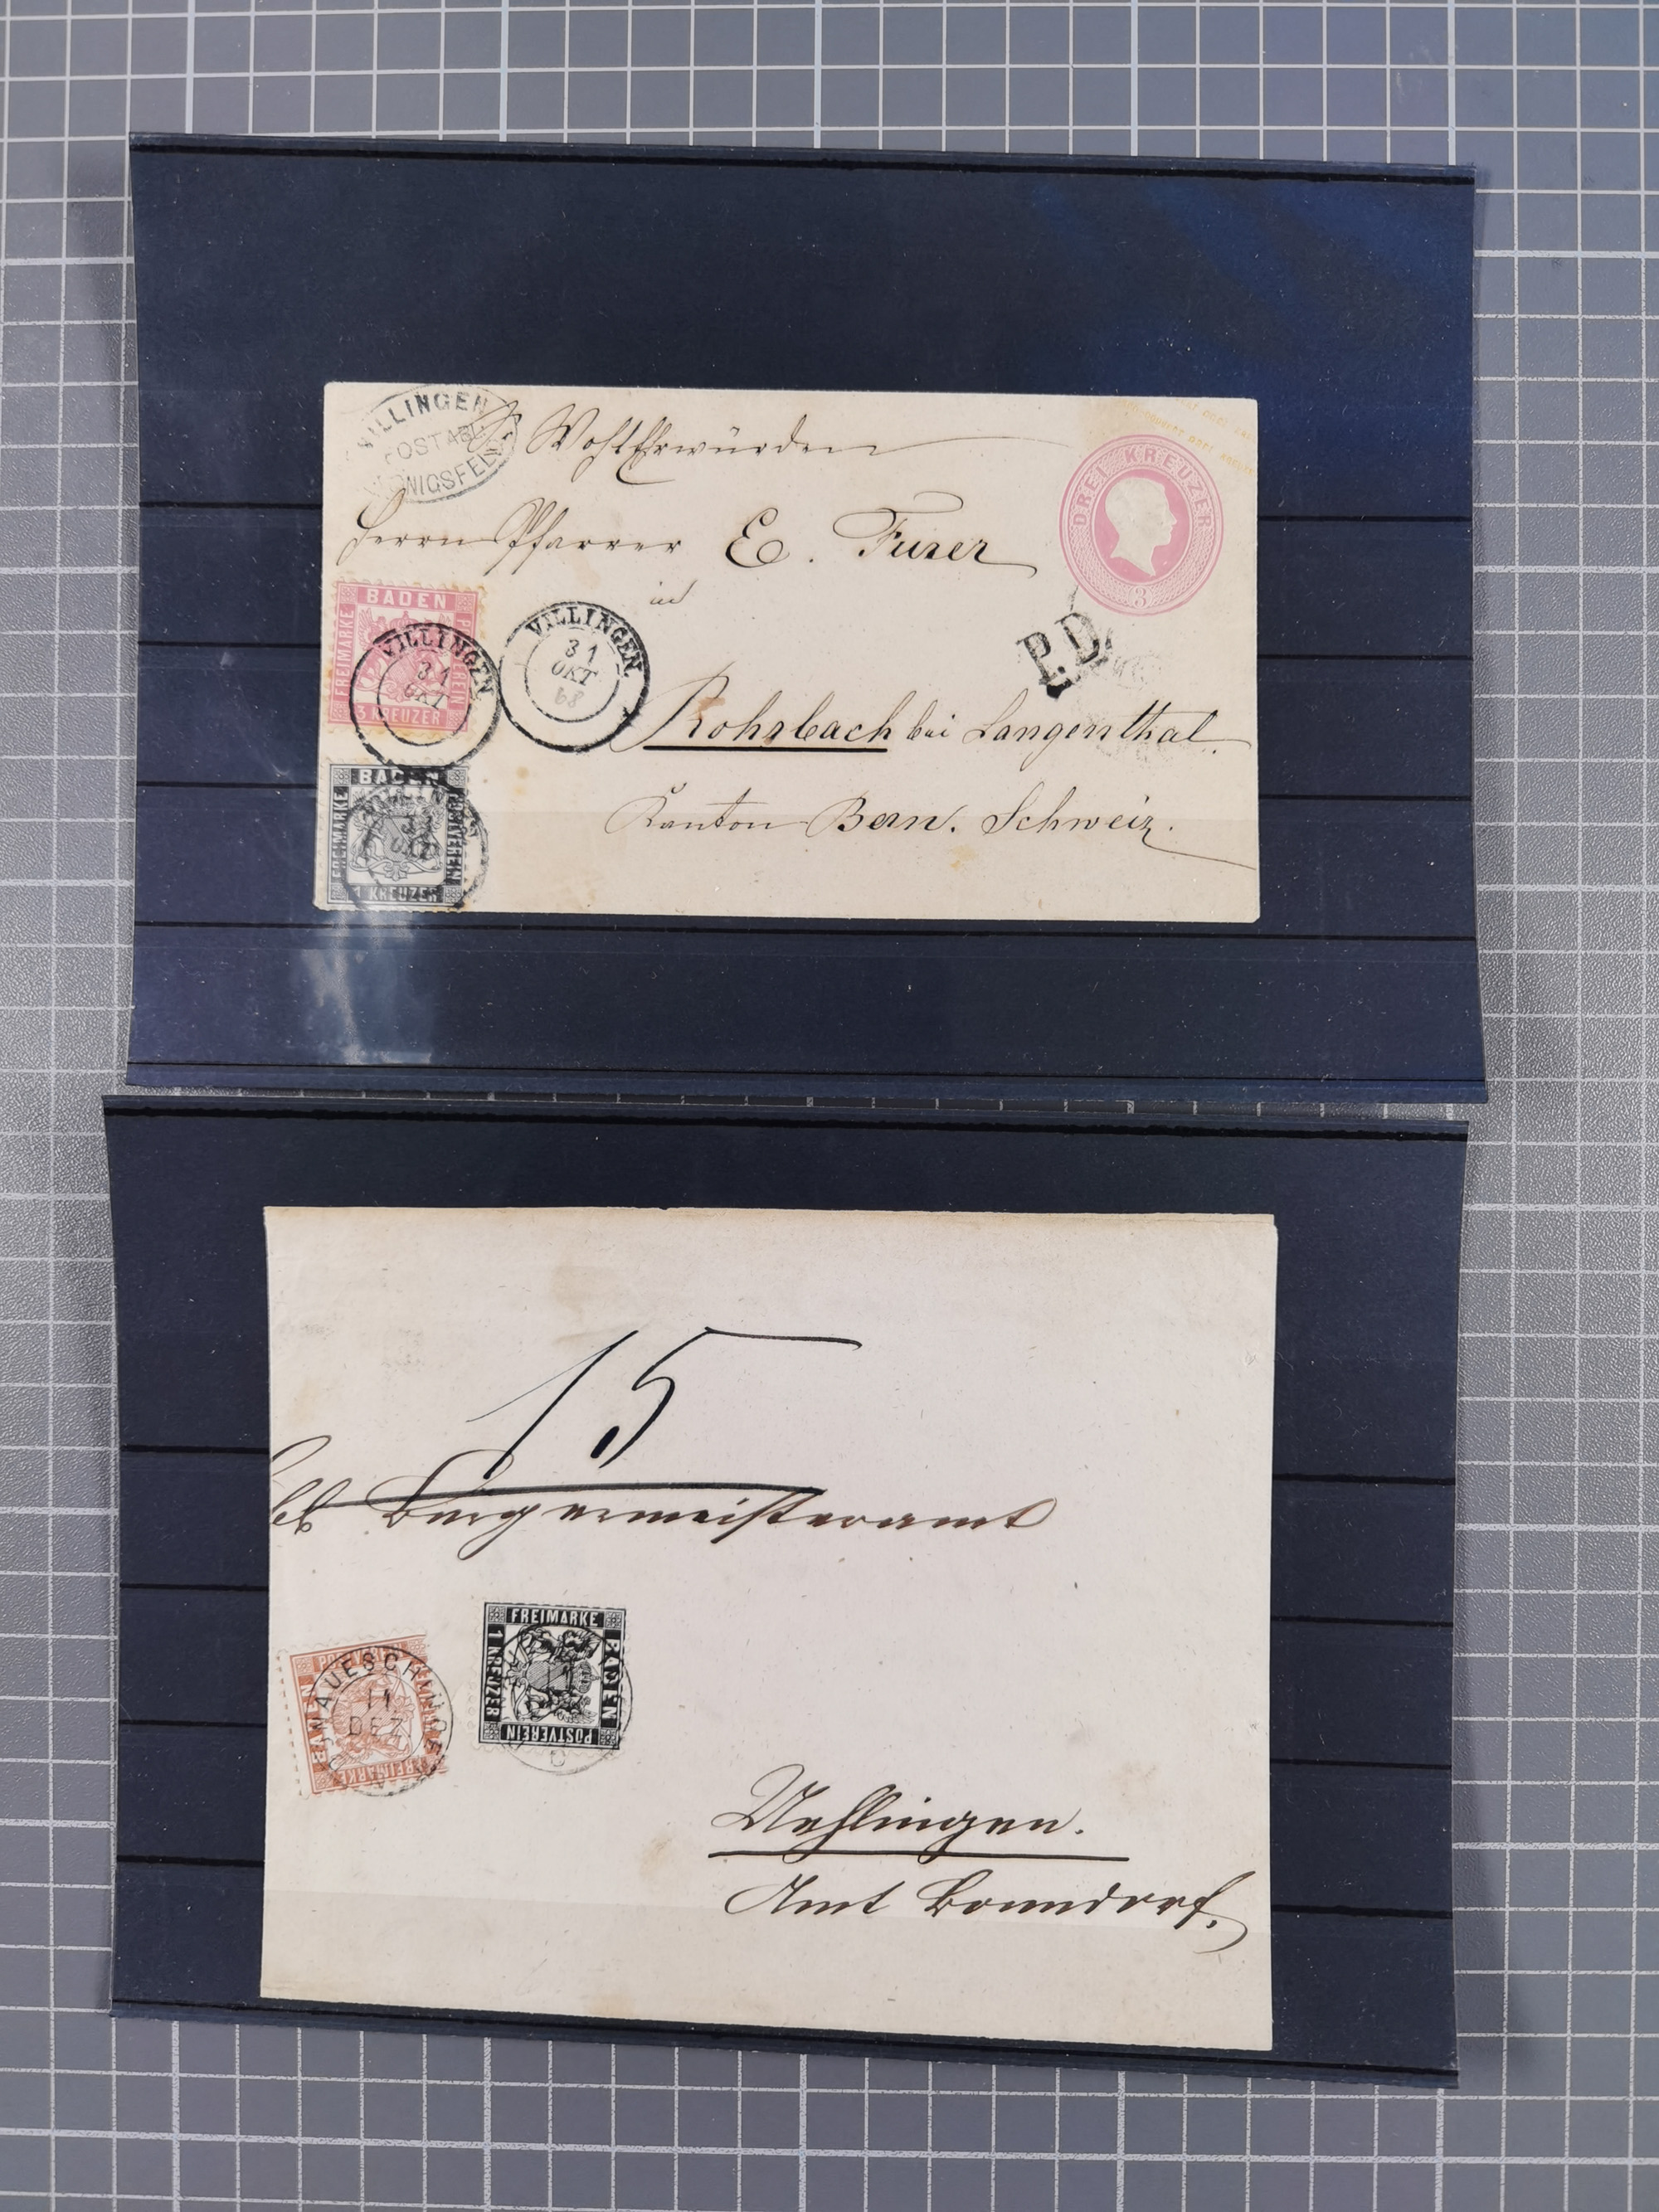 VILLINGEN
POSTABL.
KÖNIGSFELD
WohlEhrwürden
Herrn Pfarrer E. Furer
in
DREI KREUZER
3
BADEN
FREIMARKE
POSTVEREIN
3 KREUZER
VILLINGEN
31
OKT
VILLINGEN
31
OKT
68
P.D.
Rohrbach bei Langenthal.
Kanton Bern. Schweiz.
BADEN
FREIMARKE
POSTVEREIN
1 KREUZER
OKT
15
Bürgermeisteramt
POSTVEREIN
BADEN
FREIMARKE
DONAUESCHINGEN
11
DEZ
FREIMARKE
1 KREUZER
BADEN
POSTVEREIN
Uehlingen.
Amt Bonndorf.